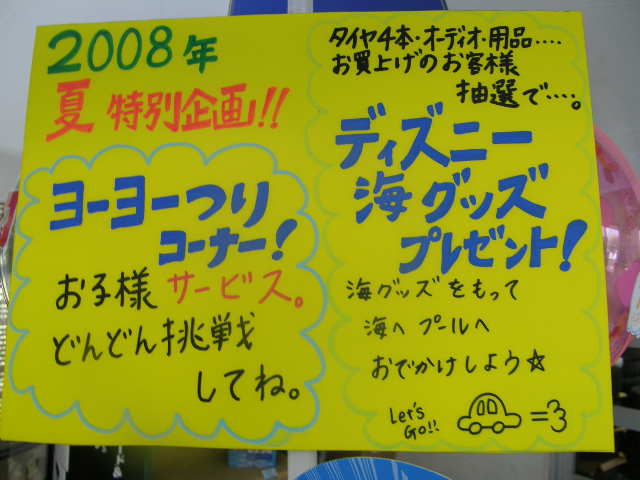 2008年
夏 特別企画!!
ヨーヨーつり
コーナー!
お子様 サービス。
どんどん挑戦
してね。
タイヤ4本・オーディオ・用品‥‥
お買上げのお客様
抽選で‥‥。
ディズニー
海グッズ
プレゼント!
海グッズをもって
海へ プールへ
おでかけしよう☆
Let's
Go!!
=3